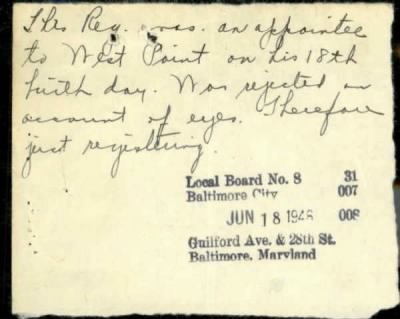 This Reg. was. an appointee
to West Point on his 18th
birth day. Was rejected on
account of eyes. Therefore
just registering.
Local Board No. 8 31
Baltimore City 007
JUN 18 1946 008
Guilford Ave. & 28th St.
Baltimore, Maryland